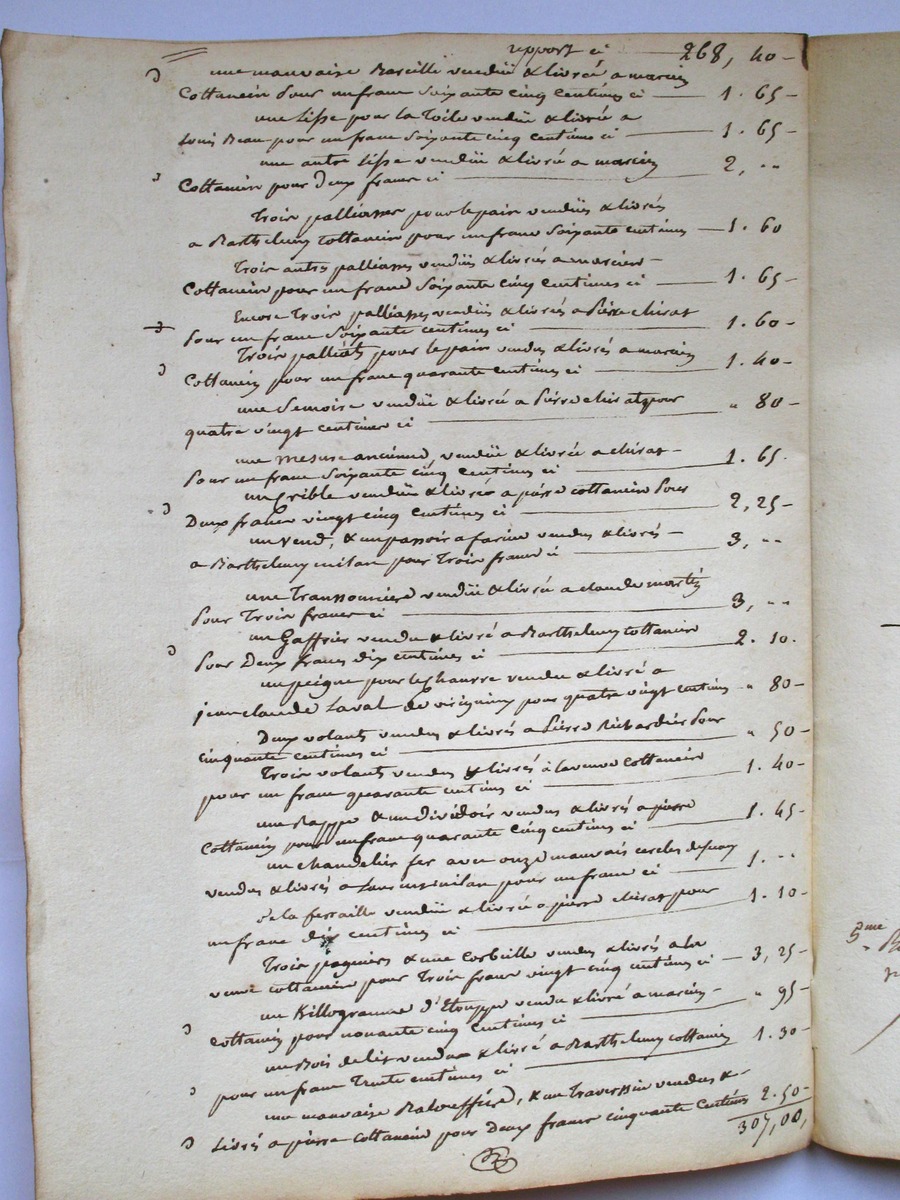 report ci 268, 40
une mauvaise vendüe & livrée a marcin
Cottancin pour un franc soixante cinq centimes ci 1. 65
une lisse pour la toile vendüe & livrée a
Louis Beau pour un franc soixante cinq centimes ci 1. 65
une autre lisse vendüe & livrée a marcin
Cottancin pour deux francs ci 2, "
Trois palliasses pour le pain vendües & livrés
a Barthelemy Cottancin pour un franc soixante centimes 1. 60
Trois autres palliasses vendües & livrées a marcin
Cottancin pour un franc soixante cinq centimes ci 1. 65
Encore Trois palliasses vendües & livrées a pierre chirat
pour un franc soixante centimes ci 1. 60
Trois palliats pour le pain vendus & livrés a marcin
Cottancin pour un franc quarante centimes ci 1. 40
une semoire vendüe & livrée a pierre chirat pour
quatre vingt centimes ci " 80
une mesure ancienne, vendüe & livrée a chirat
pour un franc soixante cinq centimes ci 1. 65
un crible vendu & livré a pierre cottancin pour
Deux francs vingt cinq centimes ci 2, 25
un vend, & un passoir a farine vendus & livrés
a Barthelemy milan pour Trois francs ci 3, "
une vendüe & livrée a claude martin
pour Trois francs ci 3, "
un Gaffrier vendu & livré a Barthelemy Cottancin
pour Deux francs dix centimes ci 2. 10
un peigne pour le chanvre vendu & livré a
jean claude Laval de pour quatre vingt centimes " 80
Deux volants vendus & livrés a pierre Richardier pour
cinquante centimes ci " 50
Trois volants vendus & livrés à la veuve Cottancin
pour un franc quarante centimes ci 1. 40
une Rappe & un dividoir vendus & livrés a pierre
Cottancin pour un franc quarante cinq centimes ci 1. 45
un chandelier fer avec onze mauvais cercles
vendus & livrés a milan pour un franc ci 1. "
de la ferraille vendüe & livrée a pierre chirat pour
un franc dix centimes ci 1. 10
Trois pagniers & une Corbeille vendus & livrés a la
veuve cottancin pour Trois francs vingt cinq centimes ci 3, 25
un Killogramme d'Etouppe vendu & livré a marcin
cottancin pour nonante cinq centimes ci " 95
un Bois de lit vendu & livré a Barthelemy cottancin
pour un franc Trente centimes ci 1. 30
une mauvaise Balouffière, & un Traversin vendus &
Livrés a pierre cottancin pour Deux francs cinquante centimes 2. 50
307, 00,
5me